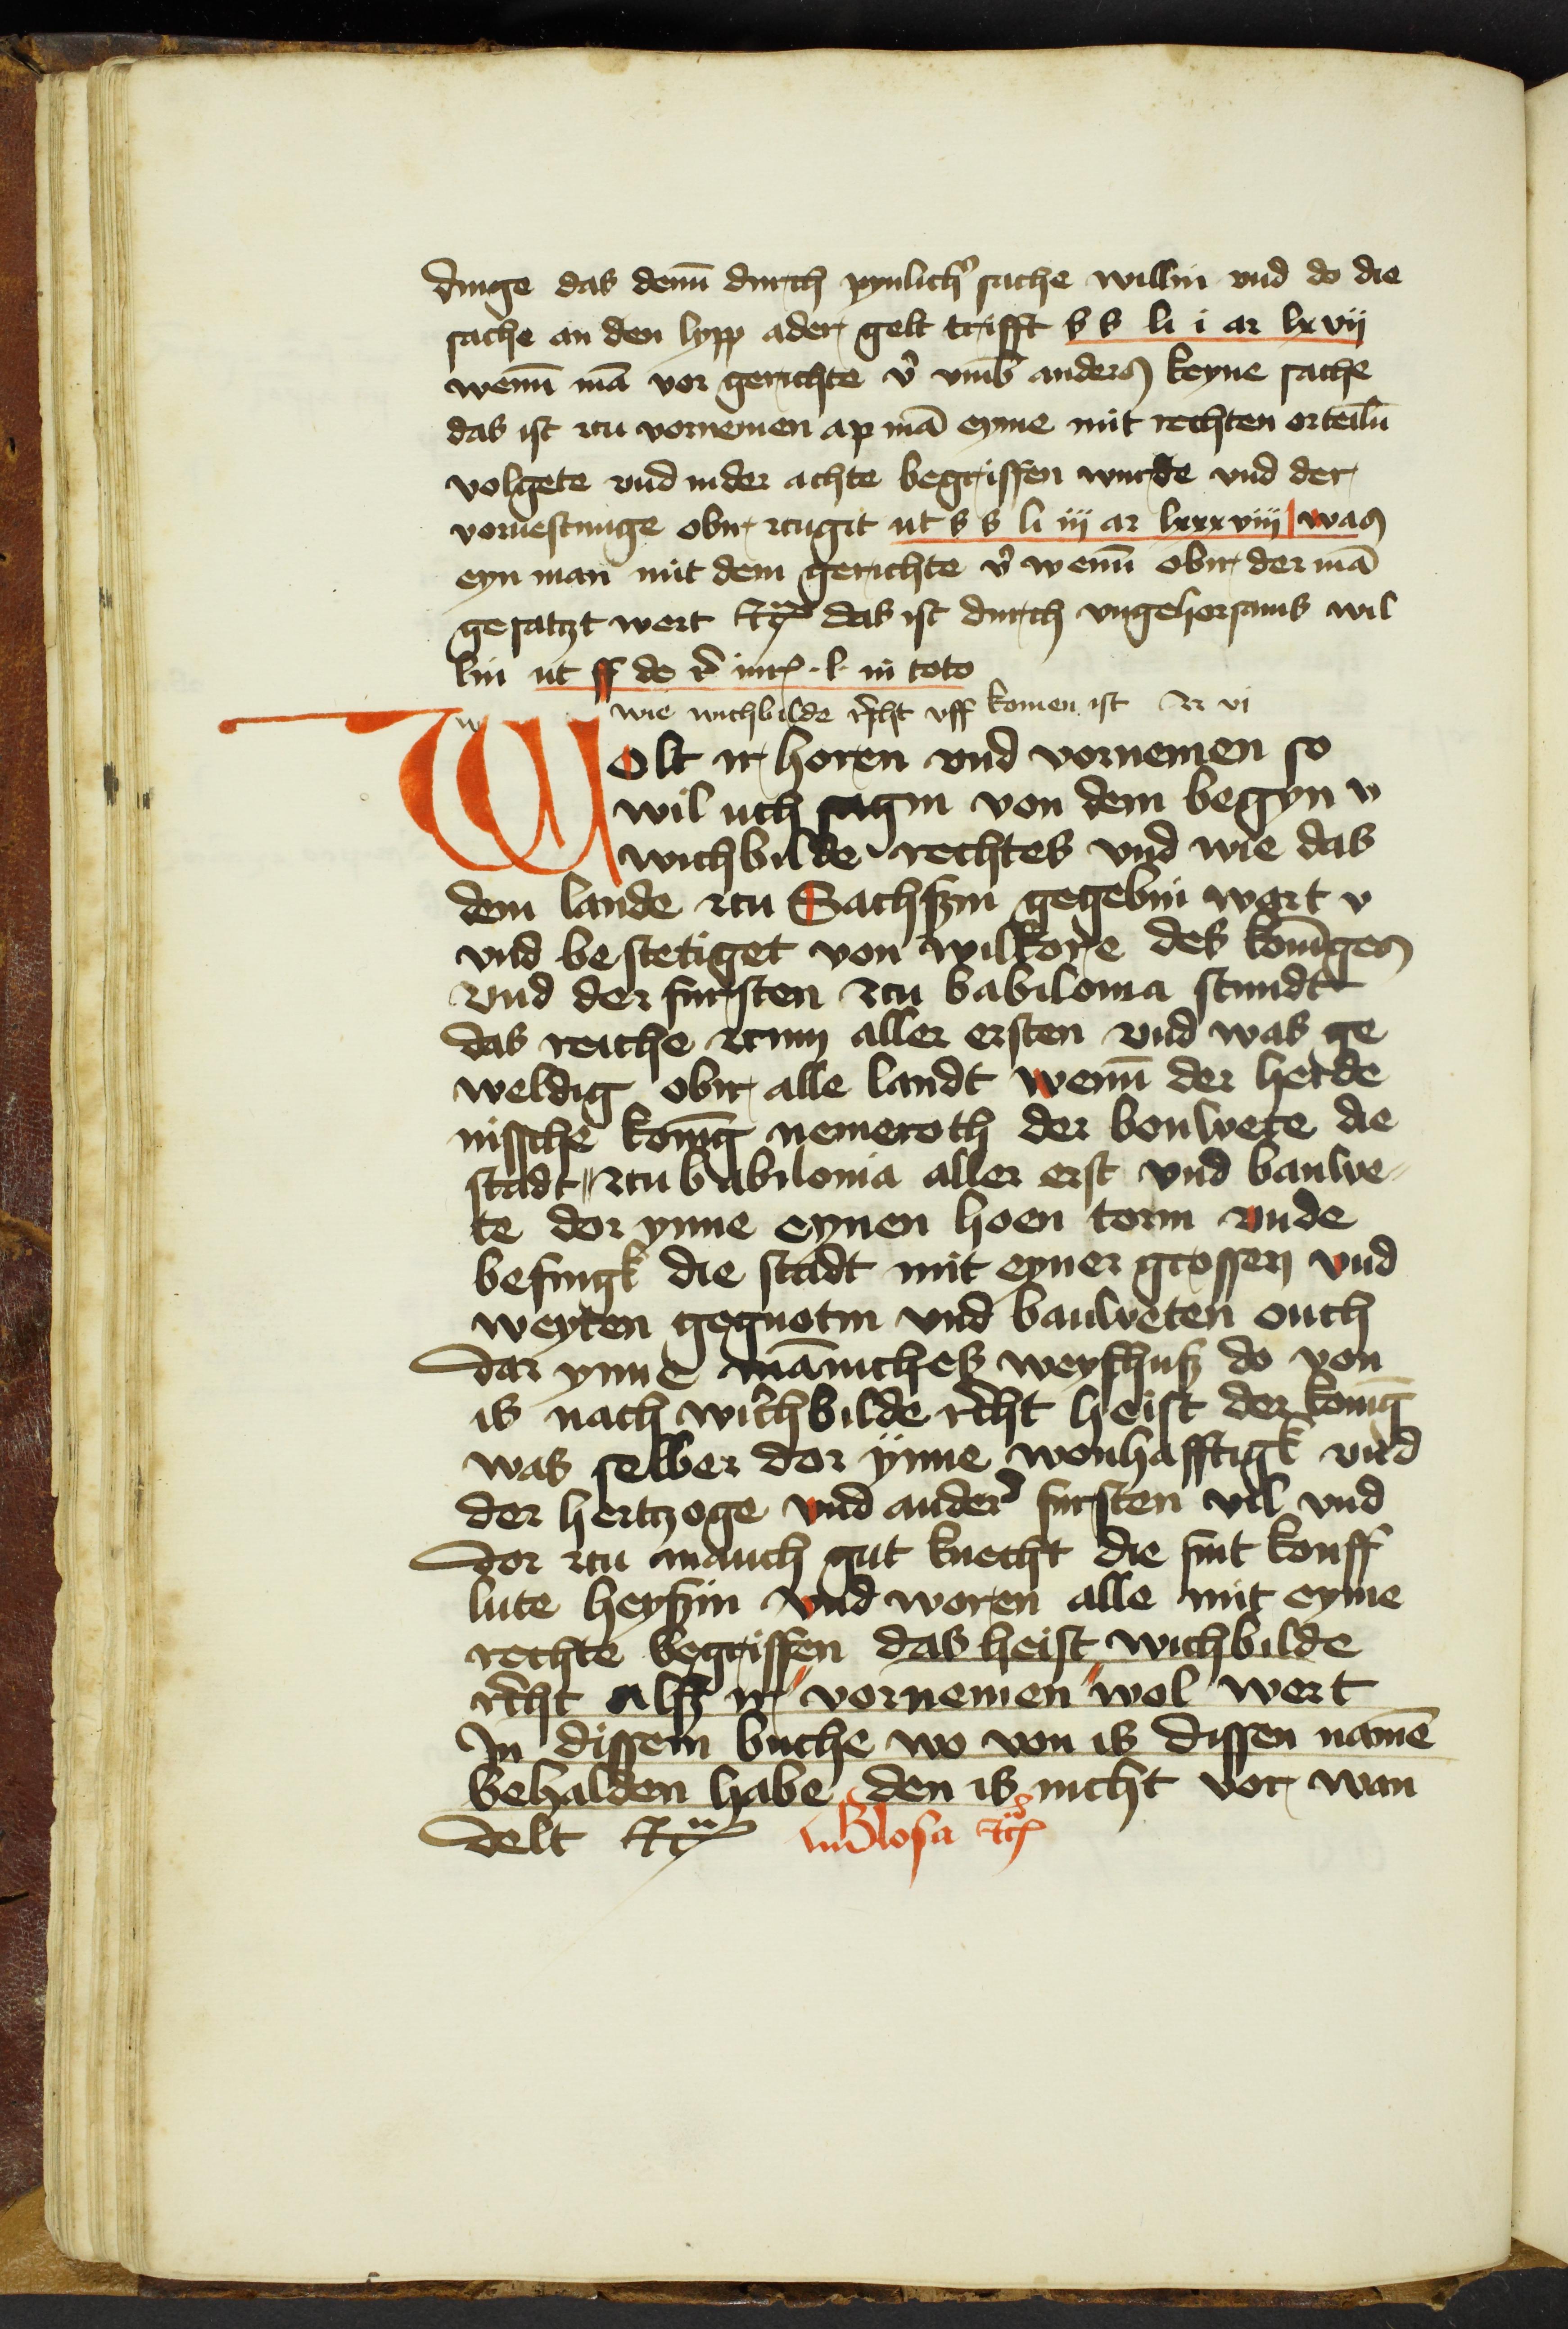 dinge das dem̄ durch pynlich᷑ sache willin vnd do die
sache an den lypp ader gelt trifft s s li i ar lxvij
wenn̄ mā vor gerichte v᷑ vmb᷑ anders keyne sache
das ist zcu vornemen ap mā eyme mit rechten orteiln̄
volgete vnd in der achte begriffen wurde vnd der
voruestunge obir zcugit ut s s li iij ar lxxxviij was
eyn man mit dem gerichte v᷑ wenn̄ obir der mā
gesatzt wert das ist durch vngehorsams wil
lin ut ff de in toto
wie wichbilde r᷑cht vff komen ist Ar vi
Wolt ir horen vnd vornemen so
wil uch sagin von dem begyn v
wichbilde rechtes vnd wie das
dem lande zcu Sachszin gegebin wart v
vnd bestetiget von wilkore des konīges
vnd der fursten zcu babilonia stundt
das reiche zcum aller ersten vnd was ge
weldig obir alle landt wenn̄ der heide
nissche konīg nemeroth der bouwete die
stadt zcu babilonia aller erst vnd bauwe
te dor ynne eynen hoen torm vnde
befingk die stadt mit eyner grossen vnd
weyten gegnotin vnd bauweten ouch
dar ynne mānichesz weyshusz do von
is nach wichbilde r᷑cht heist der konīg
was selber dor ynne wonhafftigk vnd
der hertzoge vnd ander᷑ fursten vil vnd
dor zcu manch gut knecht die sint kouff
lute heyszin vnd woren alle mit eyme
rechte begriffen das heist wichbilde
r᷑cht alsz ir vornemen wol wert
In dissem buche wo von is dissen namē
behalden habe den is nicht vor wan
delt Glosa